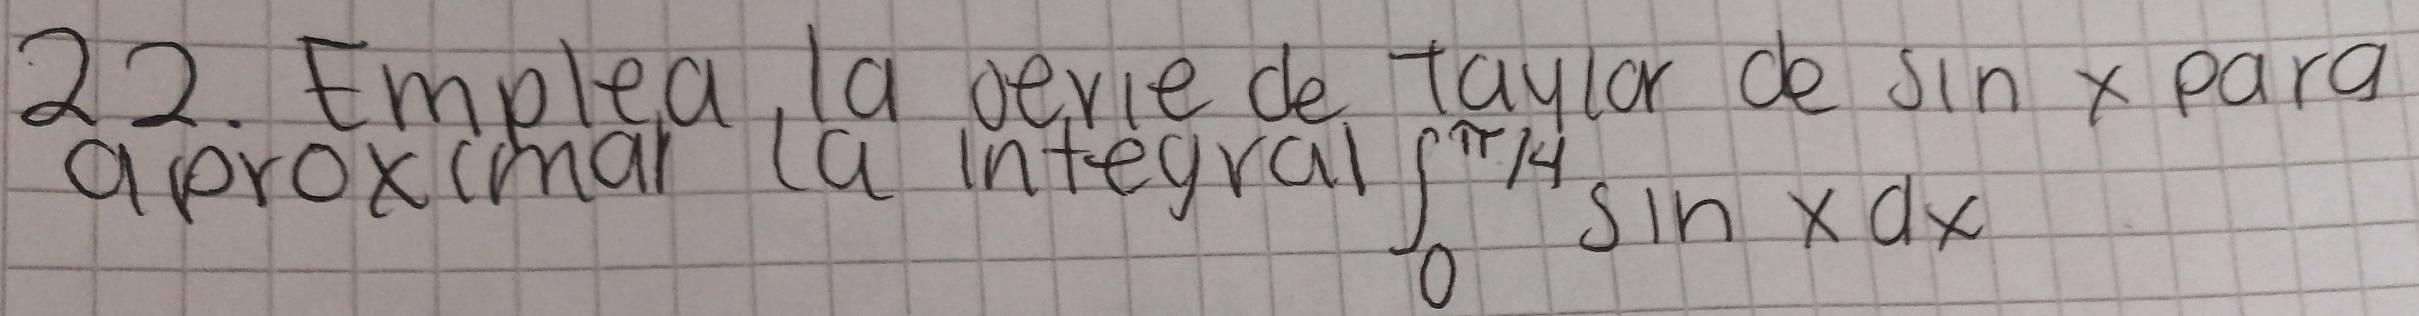 22. Emplea la serie de taylor de sin x para
aproximar la integral ∫₀^π/4 sin x dx